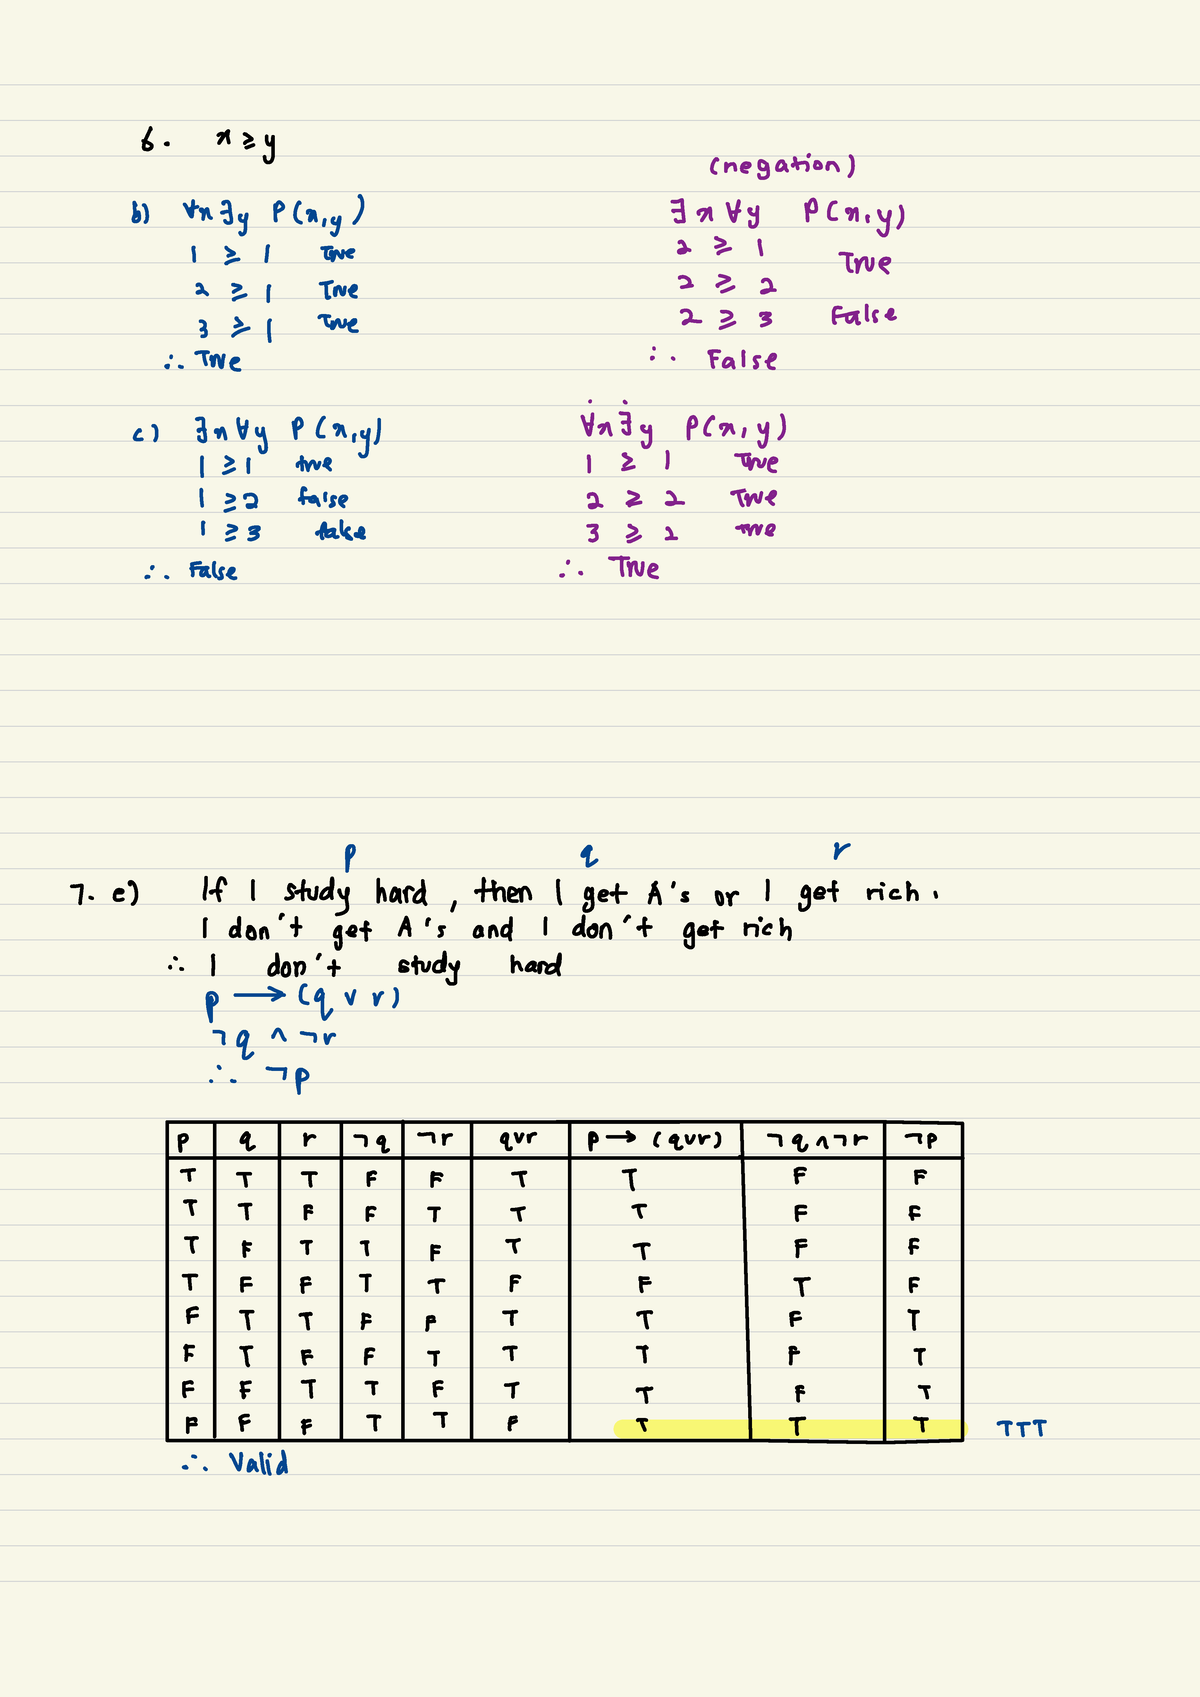 6. x ≥ y
(negation)
b) ∀x ∃y P(x,y)
1 ≥ 1 True
2 ≥ 1 True
3 ≥ 1 True
∴ True
∃x ∀y P(x,y)
2 ≥ 1
True
2 ≥ 2
2 ≥ 3 False
∴ False
c) ∃x ∀y P(x,y)
1 ≥ 1 true
1 ≥ 2 false
1 ≥ 3 false
∴ False
∀x ∃y P(x,y)
1 ≥ 1 True
2 ≥ 2 True
3 ≥ 2 true
∴ True
p q r
7. e) If I study hard, then I get A's or I get rich.
I don't get A's and I don't get rich
∴ I don't study hard
p → (q ∨ r)
¬q ∧ ¬r
∴ ¬p
p q r ¬q ¬r q∨r p → (q∨r) ¬q ∧ ¬r ¬p
T T T F F T T F F
T T F F T T T F F
T F T T F T T F F
T F F T T F F T F
F T T F F T T F T
F T F F T T T F T
F F T T F T T F T
F F F T T F T T T TTT
∴ Valid